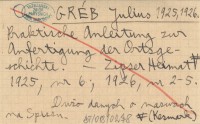 GRÉB Julius 1925, 1926.
Praktische Anleitung zur
Anfertigung der Ortsge-
schichte. - Zipser Heimat
1925, nr 6, 1926, nr 2-5.
Dużo danych o nazwach
na Spiszu. (Kesmark)